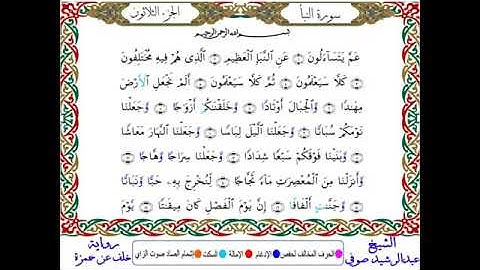 سورة النبأ
الجزء الثلاثون
بسم الله الرحمن الرحيم
عَمَّ يَتَسَآءَلُونَ ۝ عَنِ ٱلنَّبَإِ ٱلْعَظِيمِ ۝ ٱلَّذِى هُمْ فِيهِ مُخْتَلِفُونَ
۝ كَلَّا سَيَعْلَمُونَ ۝ ثُمَّ كَلَّا سَيَعْلَمُونَ ۝ أَلَمْ نَجْعَلِ ٱلْأَرْضَ
مِهَٰدًا ۝ وَٱلْجِبَالَ أَوْتَادًا ۝ وَخَلَقْنَٰكُمْ أَزْوَٰجًا ۝ وَجَعَلْنَا
نَوْمَكُمْ سُبَاتًا ۝ وَجَعَلْنَا ٱلَّيْلَ لِبَاسًا ۝ وَجَعَلْنَا ٱلنَّهَارَ مَعَاشًا
۝ وَبَنَيْنَا فَوْقَكُمْ سَبْعًا شِدَادًا ۝ وَجَعَلْنَا سِرَاجًا وَهَّاجًا ۝
وَأَنزَلْنَا مِنَ ٱلْمُعْصِرَٰتِ مَآءً ثَجَّاجًا ۝ لِّنُخْرِجَ بِهِۦ حَبًّا وَنَبَاتًا
۝ وَجَنَّٰتٍ أَلْفَافًا ۝ إِنَّ يَوْمَ ٱلْفَصْلِ كَانَ مِيقَٰتًا ۝ يَوْمَ
الشيخ عبدالرشيد صوفي
الحرف المخالف لحفص الإدغام الإمالة السكت إشمام الصاد صوت الزاي
رواية خلف عن حمزة